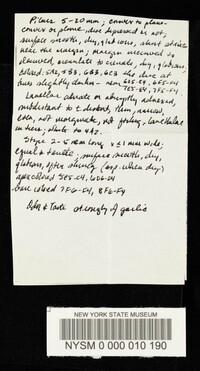 Pileus 5-20 mm; convex to plano-
convex or plane, disc depressed or not,
surface smooth, dry, glabrous, short striate
near the margin; margin incurved to
decurved, crenulate to
colored; 5A2, 5B3, 6B3, 6C3 the disc at
Lamellae adnate or abruptly adnexed,
subdistant to ± distant, thin, narrow,
edge, not marginate, not forking, lamellulae
numbers; white to 4A2.
Stipe 2-5 mm long, x ≤ 1 mm wide
equal & tensile; surface smooth, dry,
glabrous, often shiny (esp. when dry)
apex colored 5E5-F4, 6D6-F4
base colored 7F6-F4, 8F6-F4
Odor & Taste strongly of garlic
NEW YORK STATE MUSEUM
NYSM 0 000 010 190